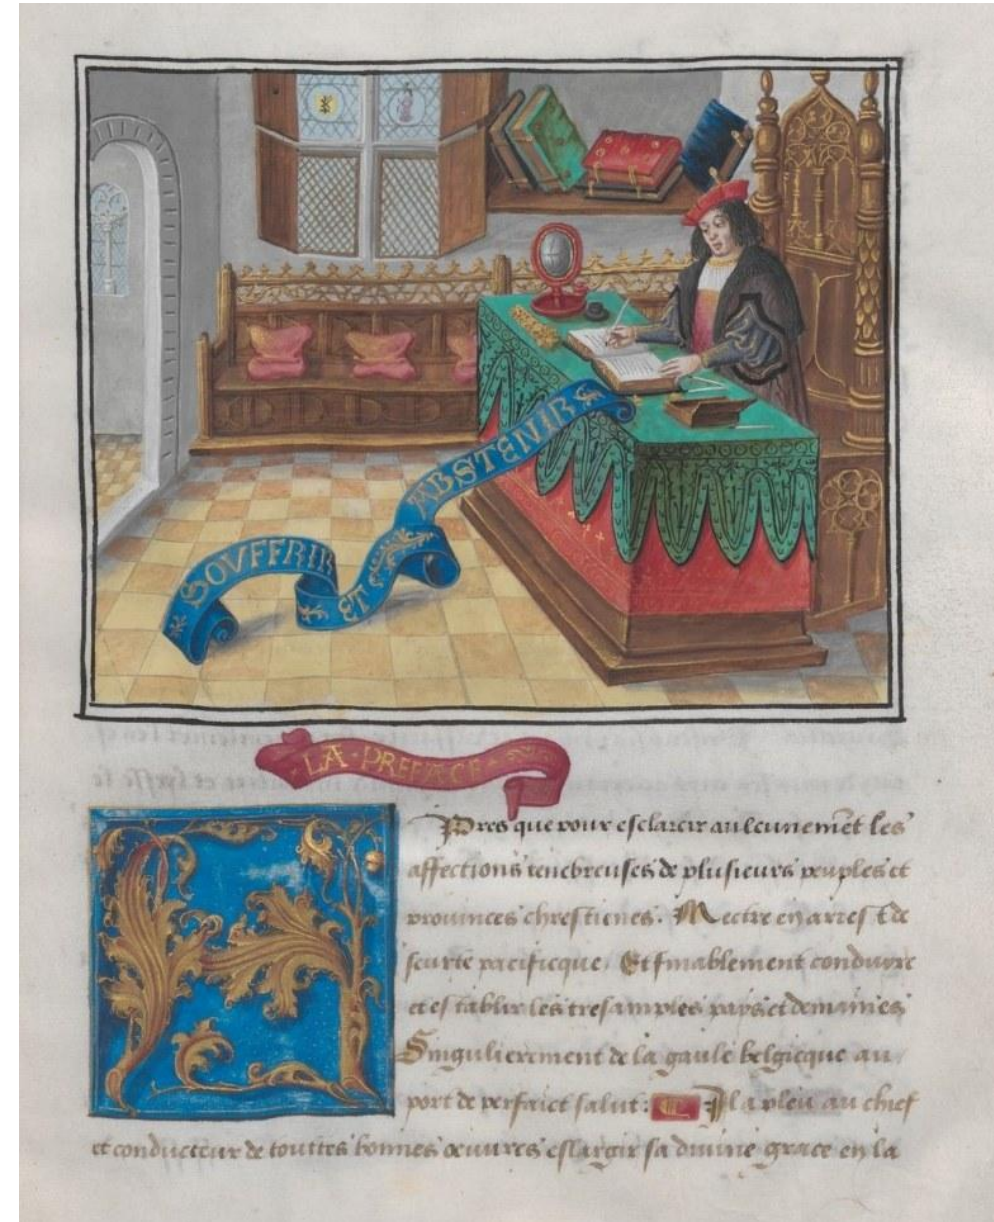 SOVFFRIR
ET
ABSTENIR
LA PREFACE
Apres que pour esclarcir aulcunemēt les
affections tenebreuses de plusieurs peuples et
prouinces chrestienes. Mectre en arrest de
seurte pacificque. Et finablement conduyre
et establir les tresamples pays et demaines
Singulierement de la gaule belgicque au
port de perfaict salut: Il a pleu au chief
et conducteur de touttes bonnes œuures eslargir sa diuine grace en la